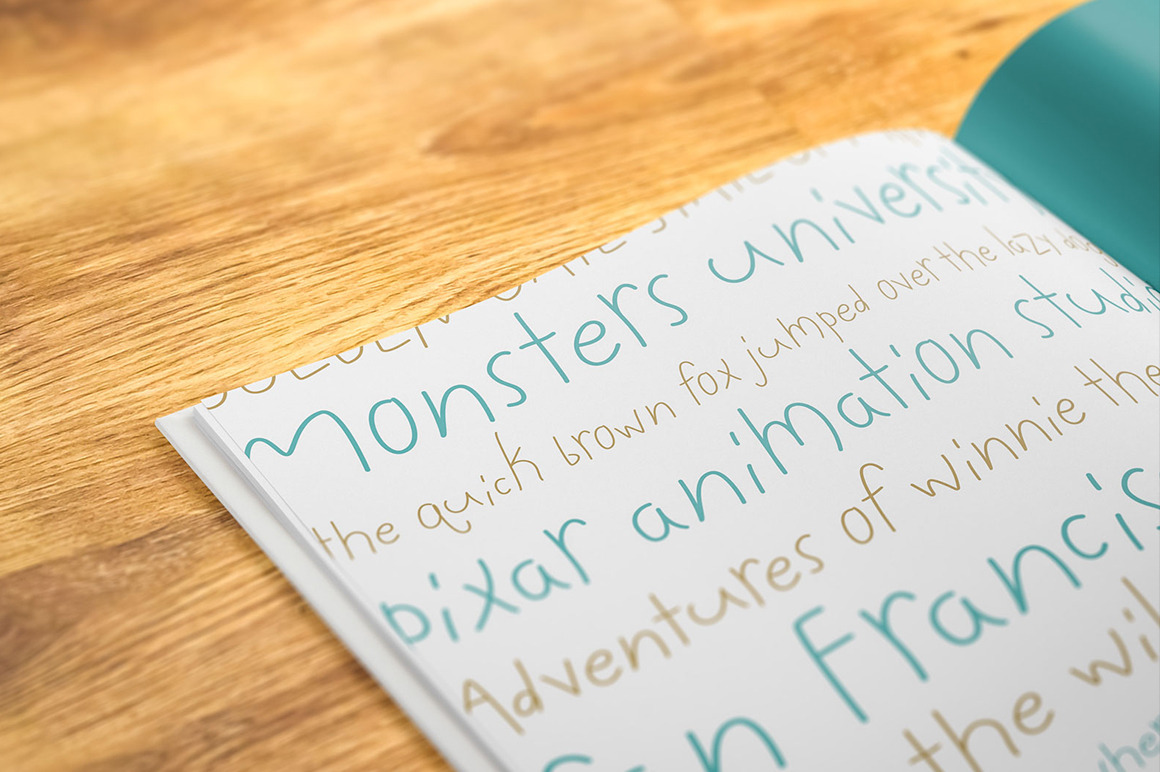 monsters universit
the quick brown fox jumped over the lazy dog
pixar animation studi
Adventures of winnie the
San Francis
the wil